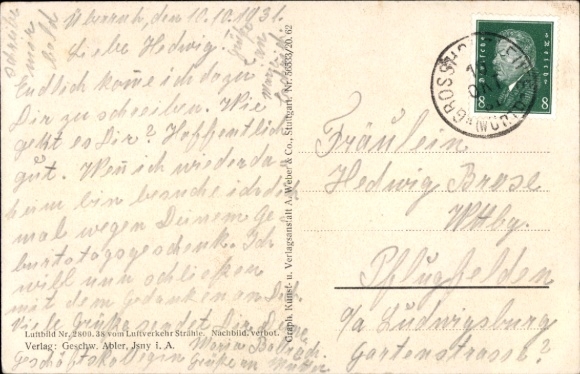 den 10.10.1931.
Liebe Hedwig.
Endlich komme ich dazu
Dir zu schreiben. Wie
geht es Dir? Hoffentlich
gut. Wenn ich wieder da
heim bin besuche ich dich
mal wegen Deinem Ge
burtstagsgeschenk. Ich
will nun schließen
mit dem Gedanken an Dich
Viele Grüße sendet Dir Deine
Geschäftskollegin Maria
Grüße an Mutter
schreibe
mir
bald
Grüße
an
Luftbild Nr. 2800. 38 vom Luftverkehr Strähle. Nachbild. verbot.
Verlag: Geschw. Abler, Jsny i. A.
Graph. Kunst- u. Verlagsanstalt A. Weber & Co., Stuttgart. Nr. 56353/20. 62
Deutsches Reich
8 8
GROSS
(WÜRTT)
Fräulein
Hedwig
Wttbg.
Pflugfelden
o/a Ludwigsburg
Gartenstrasse?